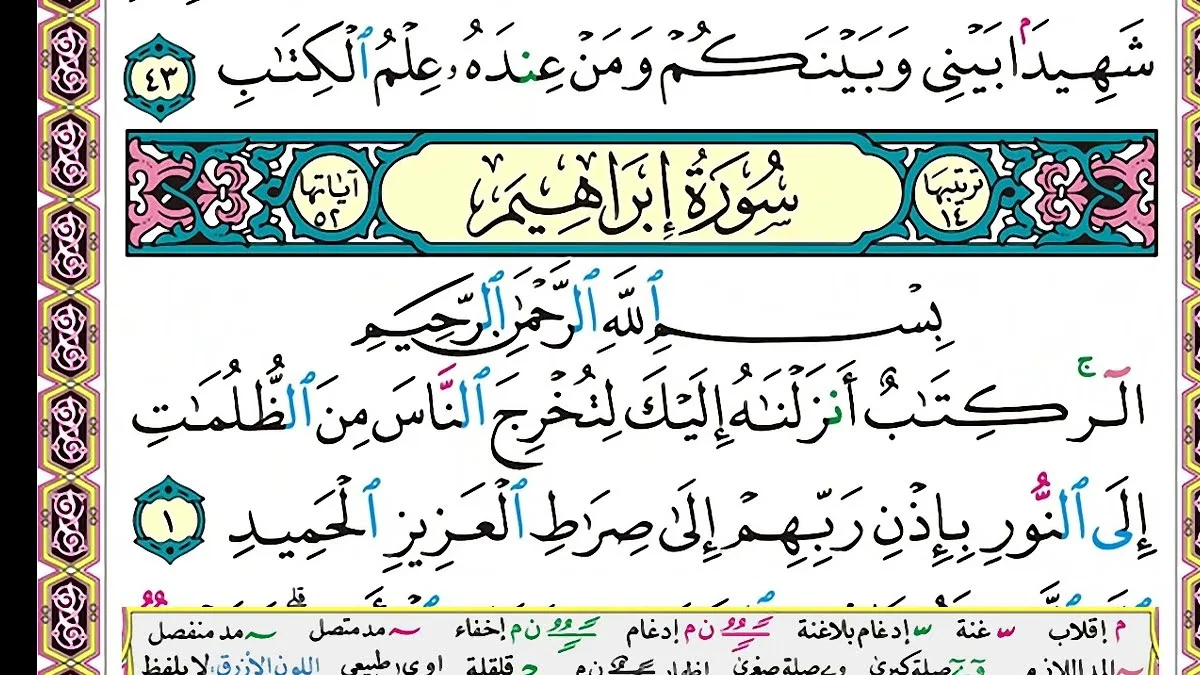 شَهِيدَۢا بَيْنِي وَبَيْنَكُمْ وَمَنْ عِندَهُۥ عِلْمُ ٱلْكِتَٰبِ ٤٣
ترتيبها ١٤ سُورَةُ إِبْرَاهِيمَ آياتها ٥٢
بِسْمِ ٱللَّهِ ٱلرَّحْمَٰنِ ٱلرَّحِيمِ
الٓرۚ كِتَٰبٌ أَنزَلْنَٰهُ إِلَيْكَ لِتُخْرِجَ ٱلنَّاسَ مِنَ ٱلظُّلُمَٰتِ
إِلَى ٱلنُّورِ بِإِذْنِ رَبِّهِمْ إِلَىٰ صِرَٰطِ ٱلْعَزِيزِ ٱلْحَمِيدِ ١
م إقلاب غنة إدغام بلاغنة ن م إدغام ن م إخفاء مد متصل مد منفصل
المد اللازم صلة كبرى صلة صغرى ن م إظهار قلقلة ا و ي ر طبيعي اللون الأزرق: لا يلفظ